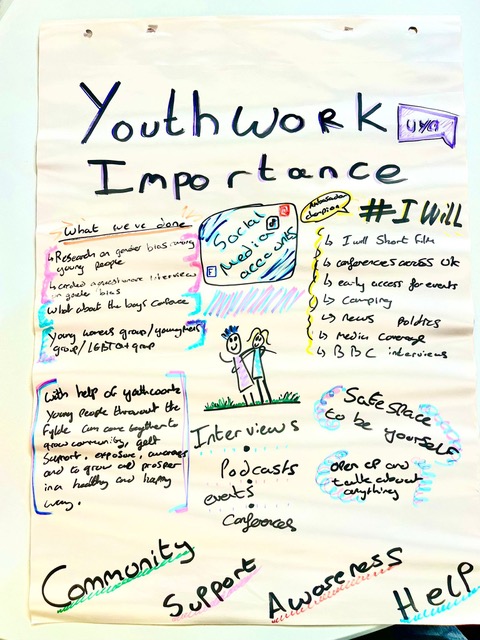 Youthwork
Importance
What we've done
Research on gender bias among
young people
interviews
on gender bias
What about the boys
Young womens group/young mens
group/LGBT group
Social
Media
accounts
Ambassador
champion
#IWill
I will Short film
conferences across UK
early access for events
Camping
news politics
Media coverage
BBC interviews
With help of
Young people throughout the
Fylde can come together to
grow community, get
support, exposure, awareness
and to grow and prosper
in a healthy and happy
way.
Interviews
Podcasts
events
Conferences
Safe space
to be yourself
open up and
talk about
anything
Community
Support
Awareness
Help